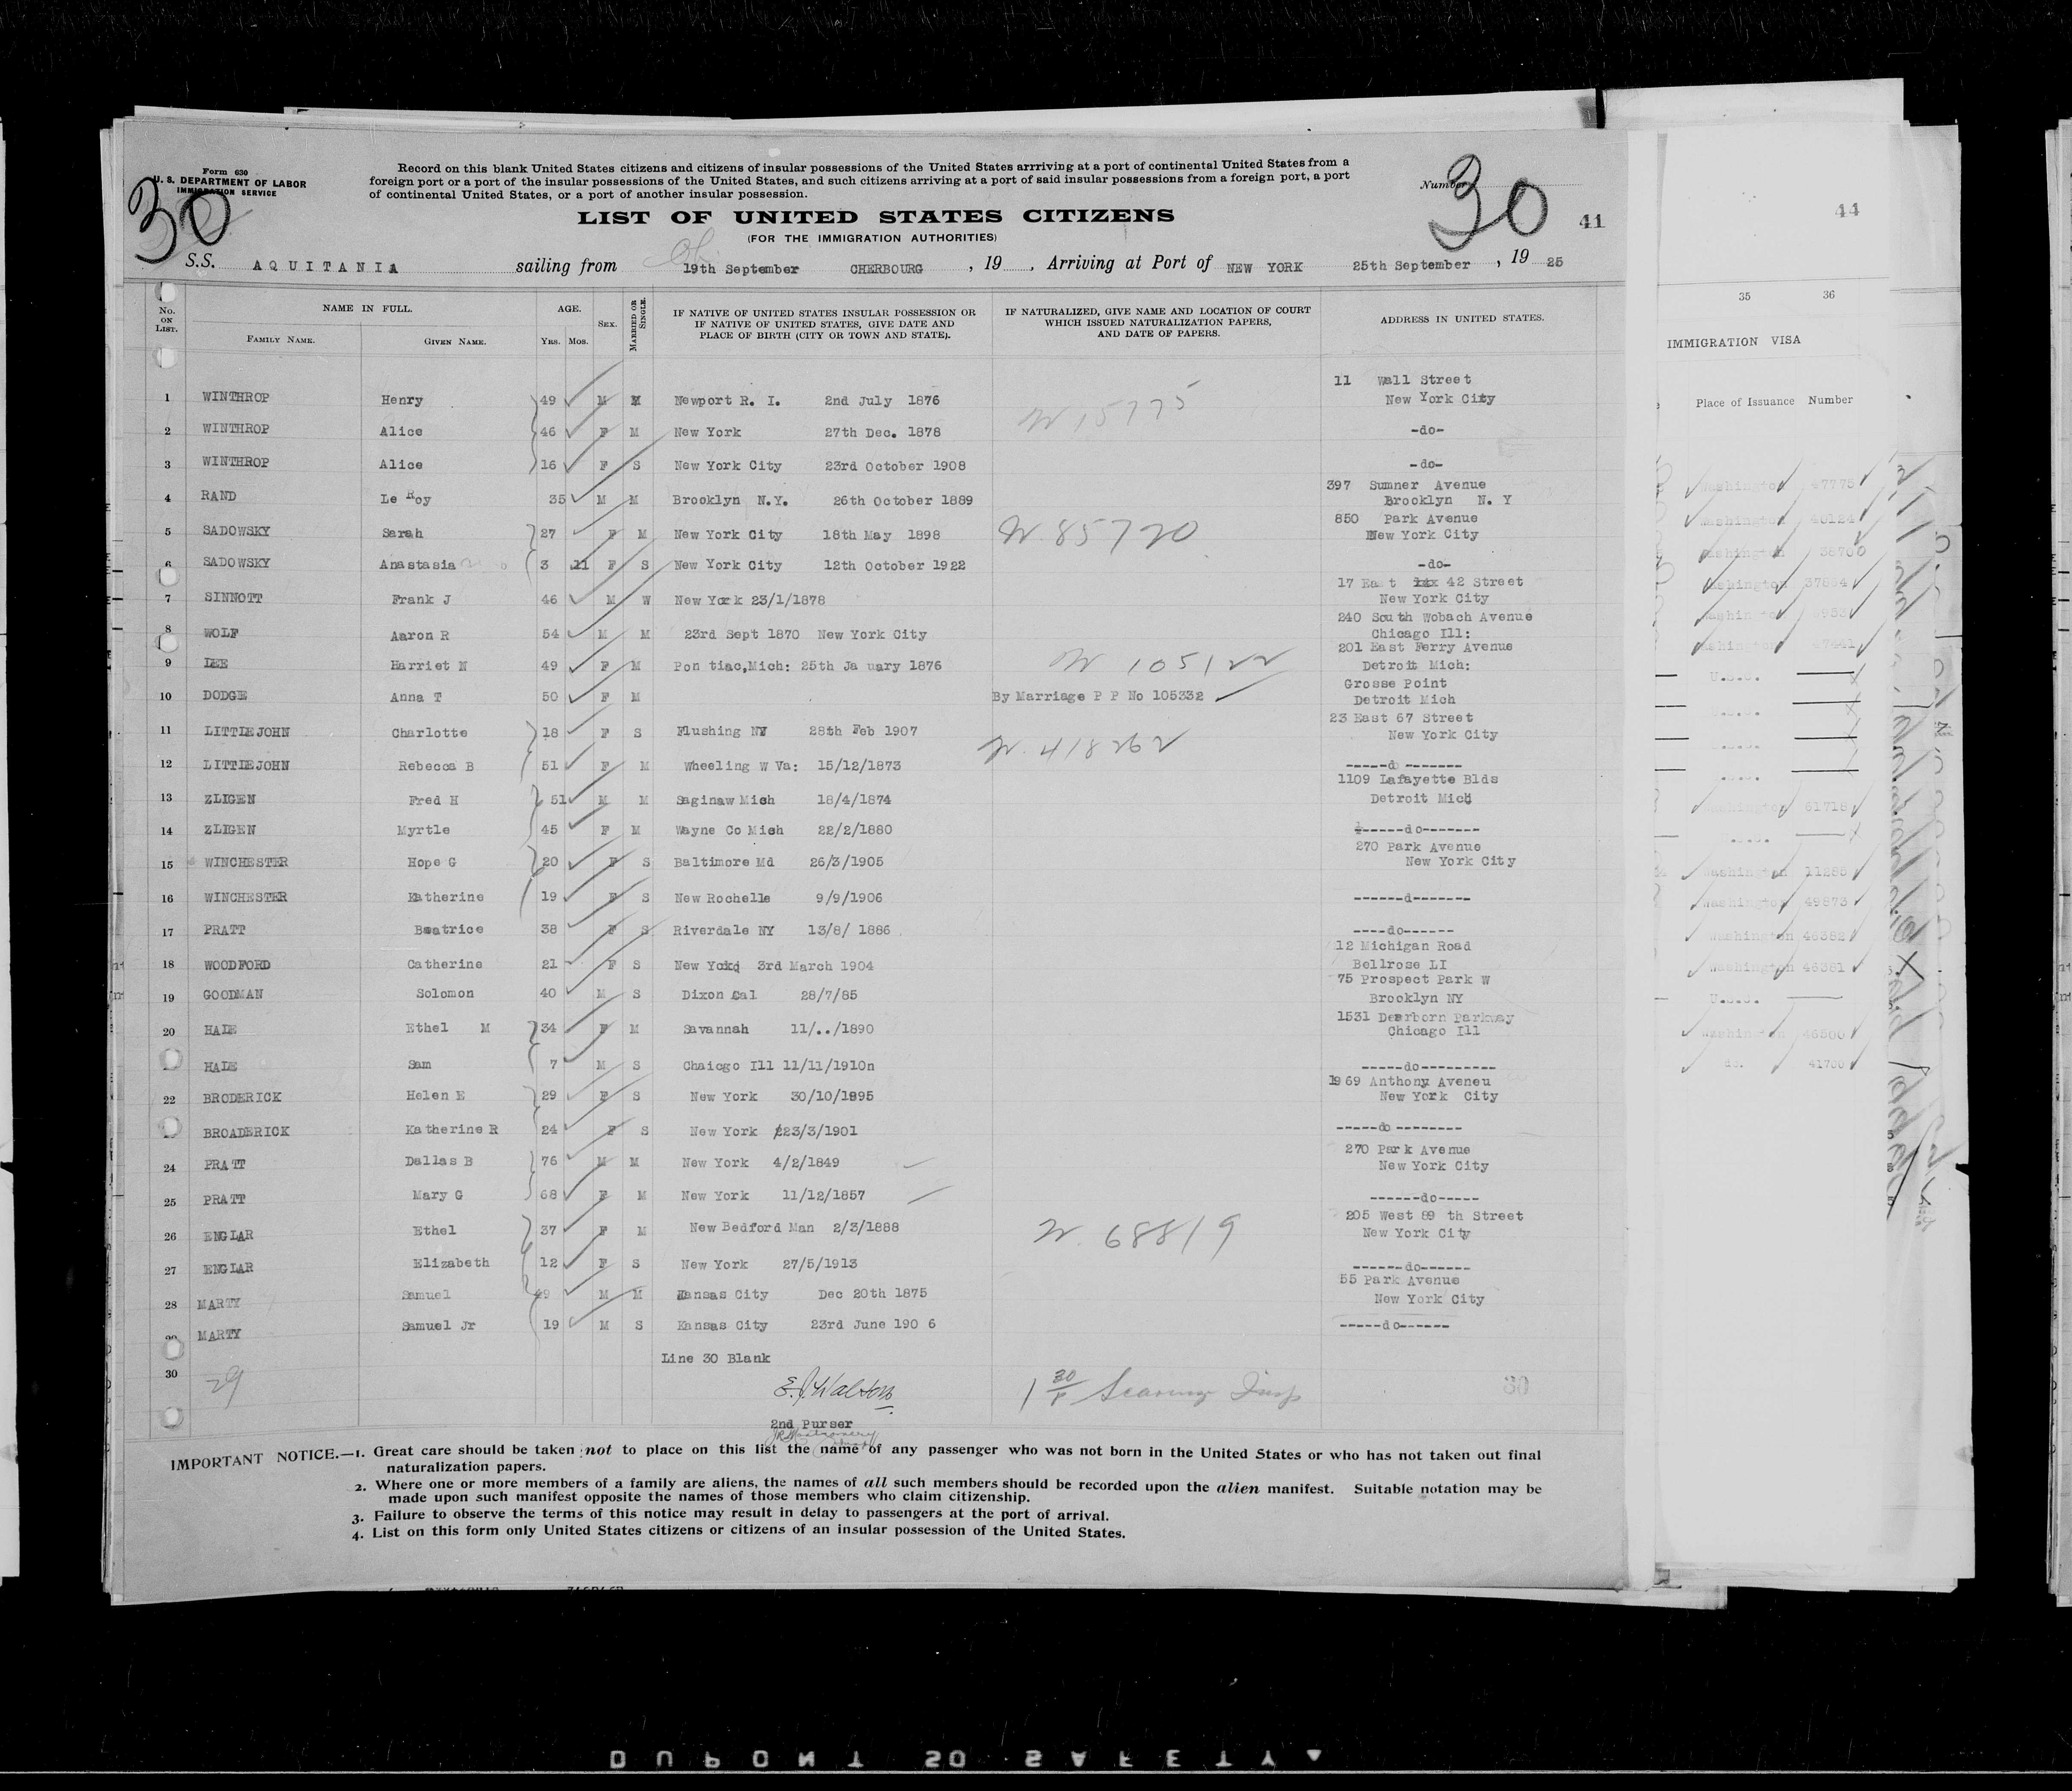 Form 630
U. S. DEPARTMENT OF LABOR
IMMIGRATION SERVICE
30
Record on this blank United States citizens and citizens of insular possessions of the United States arrriving at a port of continental United States from a
foreign port or a port of the insular possessions of the United States, and such citizens arriving at a port of said insular possessions from a foreign port, a port
of continental United States, or a port of another insular possession.
Number 30 41
LIST OF UNITED STATES CITIZENS
(FOR THE IMMIGRATION AUTHORITIES)
S.S. AQUITANIA sailing from 19th September CHERBOURG , 19 , Arriving at Port of NEW YORK 25th September , 19 25
No. ON LIST.
NAME IN FULL.
FAMILY NAME. GIVEN NAME.
AGE.
YRS. MOS.
SEX.
MARRIED OR SINGLE.
IF NATIVE OF UNITED STATES INSULAR POSSESSION OR
IF NATIVE OF UNITED STATES, GIVE DATE AND
PLACE OF BIRTH (CITY OR TOWN AND STATE).
IF NATURALIZED, GIVE NAME AND LOCATION OF COURT
WHICH ISSUED NATURALIZATION PAPERS,
AND DATE OF PAPERS.
ADDRESS IN UNITED STATES.
1 WINTHROP Henry 49 M M Newport R. I. 2nd July 1876 11 Wall Street
New York City
2 WINTHROP Alice 46 F M New York 27th Dec. 1878 -do-
3 WINTHROP Alice 16 F S New York City 23rd October 1908 -do-
4 RAND Le Roy 35 M M Brooklyn N.Y. 26th October 1889 397 Sumner Avenue
Brooklyn N. Y
5 SADOWSKY Sarah 27 F M New York City 18th May 1898 85720 850 Park Avenue
New York City
6 SADOWSKY Anastasia 3 11 F S New York City 12th October 1922 -do-
7 SINNOTT Frank J 46 M W New York 23/1/1878 17 East 42 Street
New York City
8 WOLF Aaron R 54 M M 23rd Sept 1870 New York City 240 South Wobach Avenue
Chicago Ill:
9 LEE Harriet N 49 F M Pon tiac,Mich: 25th Ja uary 1876 105122 201 East Ferry Avenue
Detroit Mich:
10 DODGE Anna T 50 F M By Marriage P P No 105332 Grosse Point
Detroit Mich
11 LITTLEJOHN Charlotte 18 F S Flushing NY 28th Feb 1907 23 East 67 Street
New York City
418262
12 LITTLEJOHN Rebecca B 51 F M Wheeling W Va: 15/12/1873 -----d -------
13 ZLIGEN Fred H 51 M M Saginaw Mich 18/4/1874 1109 Lafayette Blds
Detroit Mich
14 ZLIGEN Myrtle 45 F M Wayne Co Mich 22/2/1880 ------do-------
15 WINCHESTER Hope G 20 F S Baltimore Md 26/3/1905 270 Park Avenue
New York City
16 WINCHESTER Katherine 19 F S New Rochelle 9/9/1906 ------d-------
17 PRATT Beatrice 38 F S Riverdale NY 13/8/ 1886 ----do------
18 WOODFORD Catherine 21 F S New York 3rd March 1904 12 Michigan Road
Bellrose LI
19 GOODMAN Solomon 40 M S Dixon Cal 28/7/85 75 Prospect Park W
Brooklyn NY
20 HALE Ethel M 34 F M Savannah 11/../1890 1531 Dearborn Parkway
Chicago Ill
HALE Sam 7 M S Chaicgo Ill 11/11/1910n -----do---------
22 BRODERICK Helen E 29 F S New York 30/10/1895 1969 Anthony Aveneu
New York City
BROADERICK Katherine R 24 F S New York 23/3/1901 -----do--------
24 PRATT Dallas B 76 M M New York 4/2/1849 270 Park Avenue
New York City
25 PRATT Mary G 68 F M New York 11/12/1857 ------do-----
26 ENGLAR Ethel 37 F M New Bedford Man 2/3/1888 68819 205 West 89 th Street
New York City
27 ENGLAR Elizabeth 12 F S New York 27/5/1913 ------do------
28 MARTY Samuel 49 M M Kansas City Dec 20th 1875 55 Park Avenue
New York City
29 MARTY Samuel Jr 19 M S Kansas City 23rd June 190 6 -----do------
Line 30 Blank
30 29 30
2nd Purser
IMPORTANT NOTICE.—1. Great care should be taken not to place on this list the name of any passenger who was not born in the United States or who has not taken out final
naturalization papers.
2. Where one or more members of a family are aliens, the names of all such members should be recorded upon the alien manifest. Suitable notation may be
made upon such manifest opposite the names of those members who claim citizenship.
3. Failure to observe the terms of this notice may result in delay to passengers at the port of arrival.
4. List on this form only United States citizens or citizens of an insular possession of the United States.
44
35 36
IMMIGRATION VISA
Place of Issuance Number
Washington 47775
Washington
Washington
Washington
Washington
Washington
U.S.A.
Washington 61718
Washington 11285
Washington 49873
Washington 46382
Washington 46381
U.S.A.
Washington 46500
do. 41700
DUPONT SAFETY